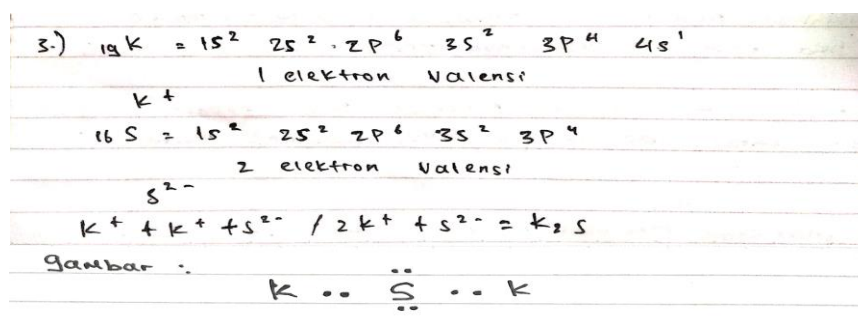 3.) 19 K = 1s² 2s² . 2p⁶ 3s² 3p⁴ 4s¹
1 elektron valensi
K⁺
16 S = 1s² 2s² 2p⁶ 3s² 3p⁴
2 elektron valensi
s²⁻
K⁺ + K⁺ + s²⁻ / 2 K⁺ + s²⁻ = K₂ S
gambar :
K .. S .. K